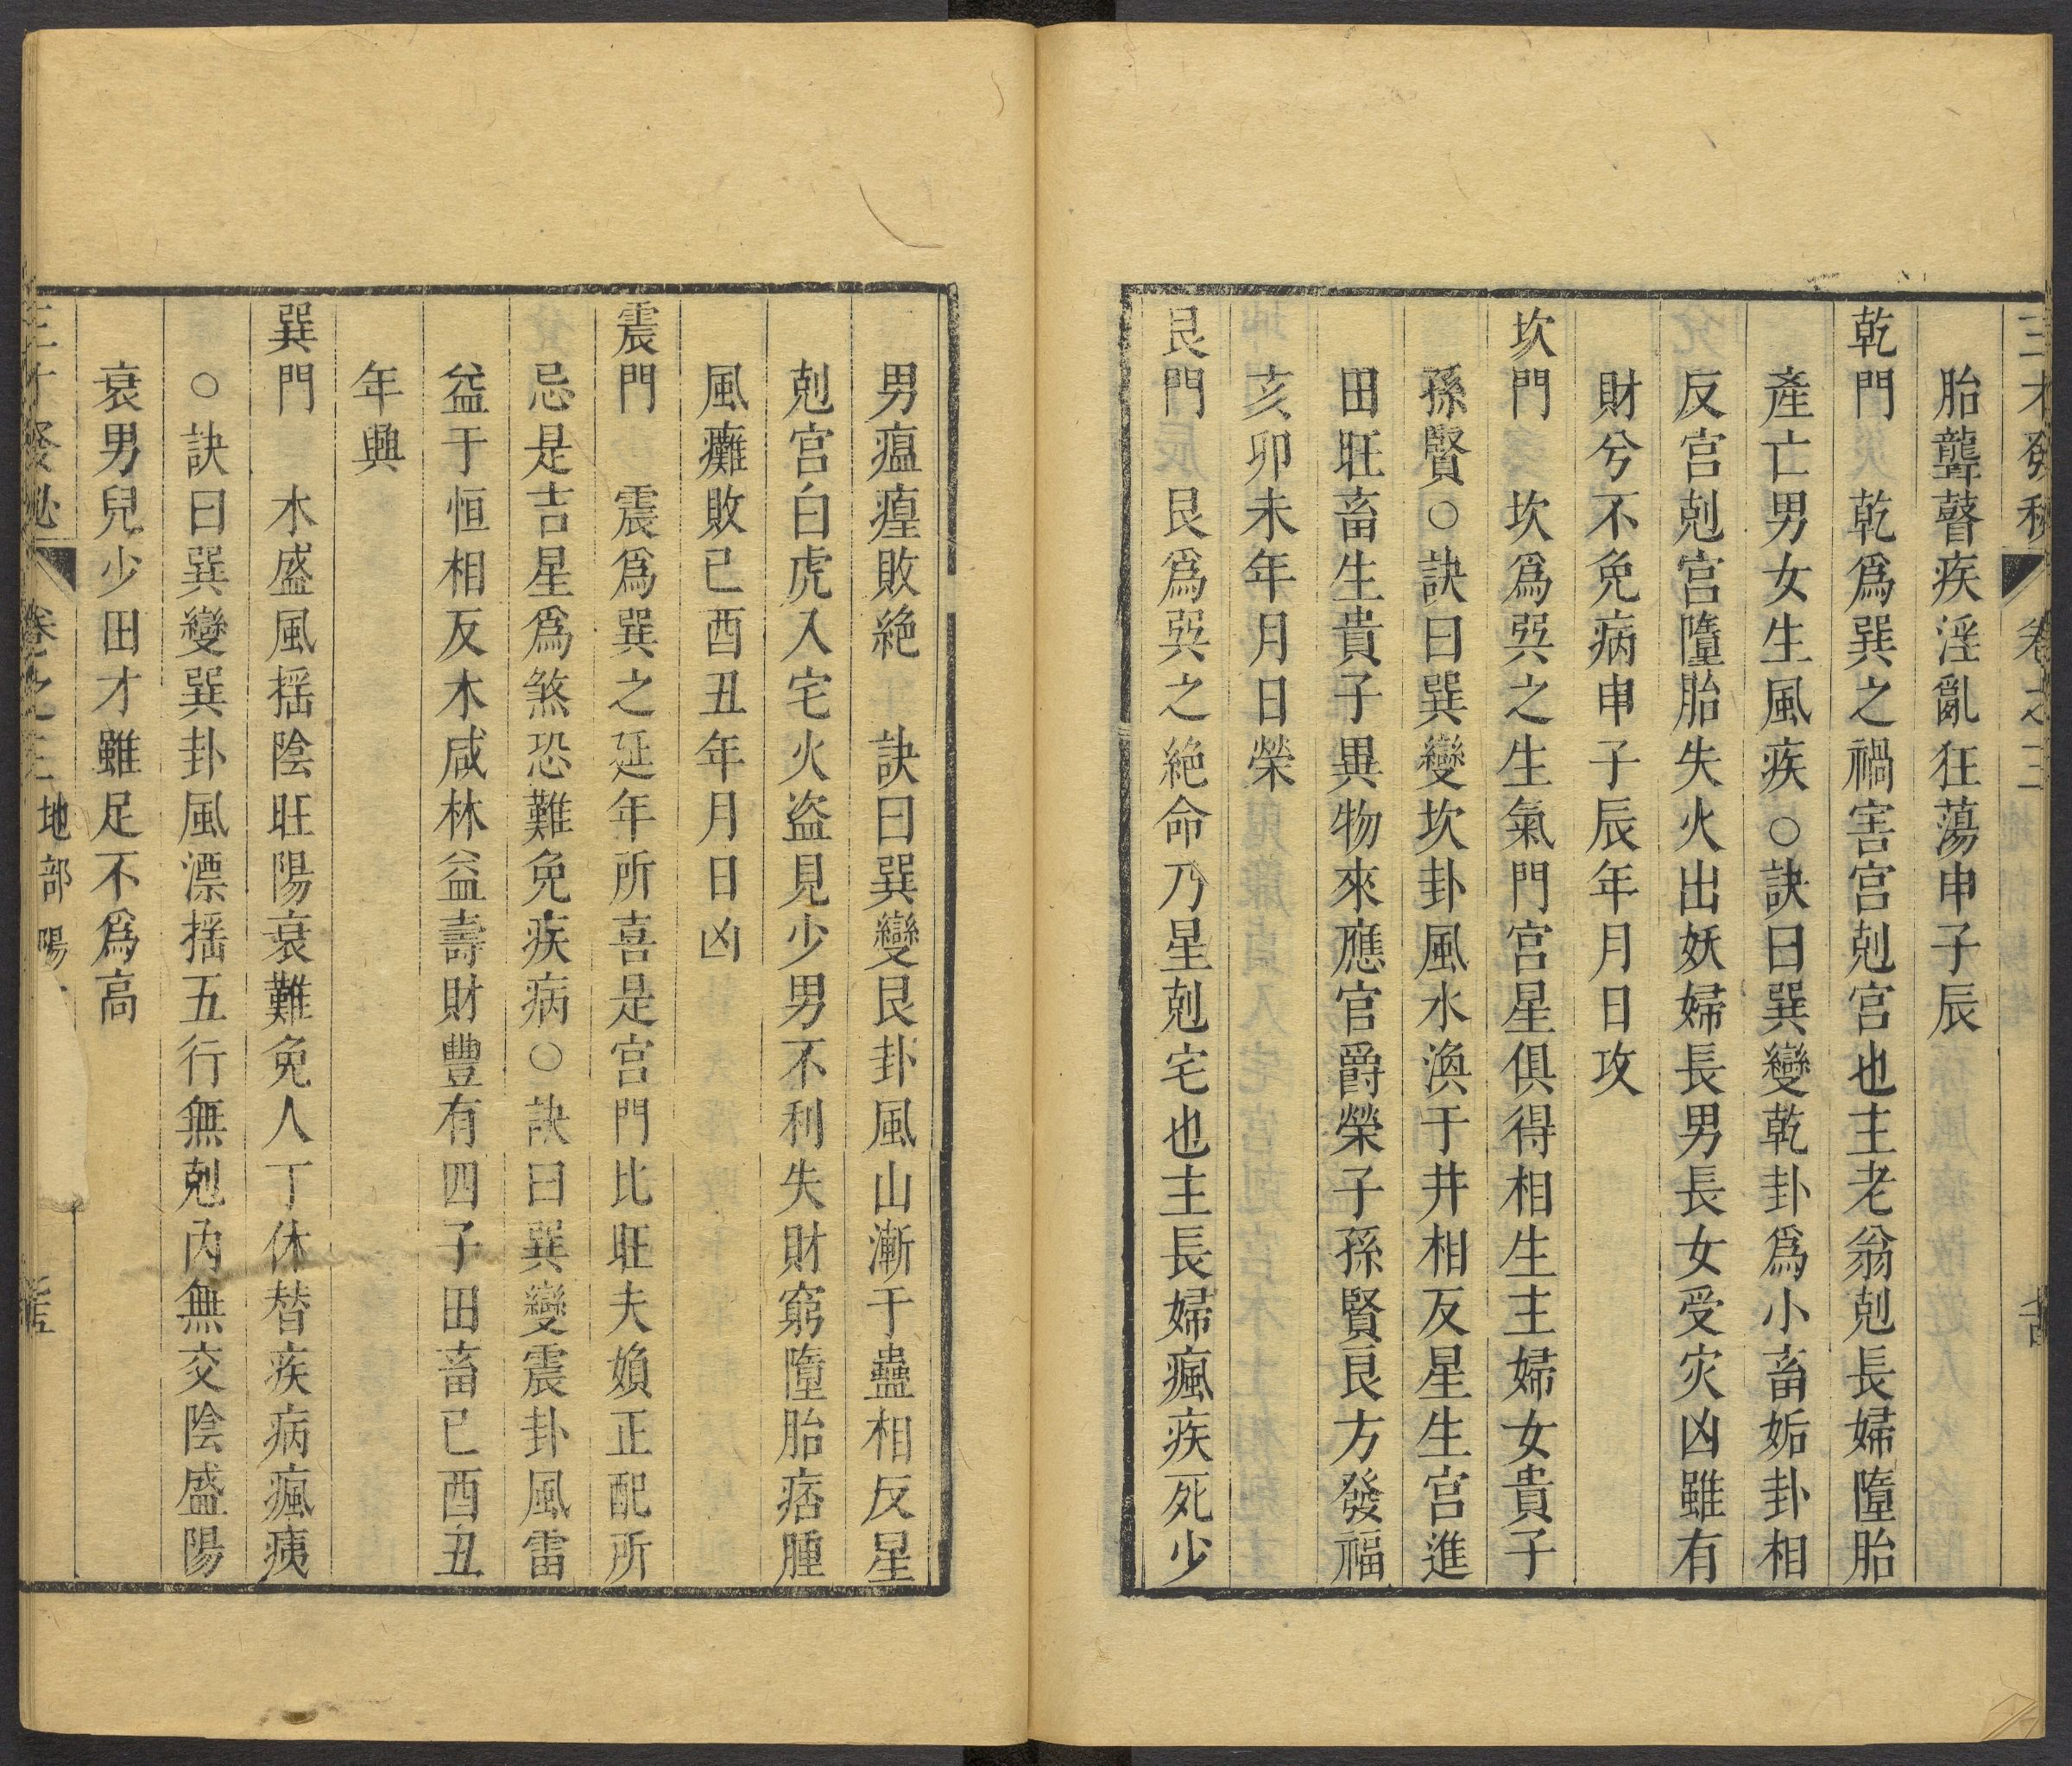 三才發秘 卷之三
胎聾瞽疾淫亂狂蕩申子辰
乾門 乾爲巽之禍害宫剋宫也主老翁剋長婦墮胎
産亡男女生風疾○訣曰巽變乾卦爲小畜姤卦相
反宫剋宫墮胎失火出妖婦長男長女受灾凶雖有
財兮不免病申子辰年月日攻
坎門 坎爲巽之生氣門宫星俱得相生主婦女貴子
孫賢○訣曰巽變坎卦風水渙于井相反星生宫進
田旺畜生貴子異物來應官爵榮子孫賢良方發福
亥卯未年月日榮
艮門 艮爲巽之絶命乃星剋宅也主長婦瘋疾死少
男瘟瘟敗絶 訣曰巽變艮卦風山漸干蠱相反星
剋宫白虎入宅火盗見少男不利失財窮墮胎痞腫
風癱敗已酉丑年月日凶
震門 震爲巽之延年所喜是宫門比旺夫媍正配所
忌是吉星爲煞恐難免疾病○訣曰巽變震卦風雷
益于恒相反木咸林益壽財豐有四子田畜已酉丑
年興
巽門 木盛風揺陰旺陽衰難免人丁休替疾病瘋痍
○訣曰巽變巽卦風漂揺五行無剋内無交陰盛陽
衰男兒少田才雖足不爲高
三才發秘 卷之三 地部 陽